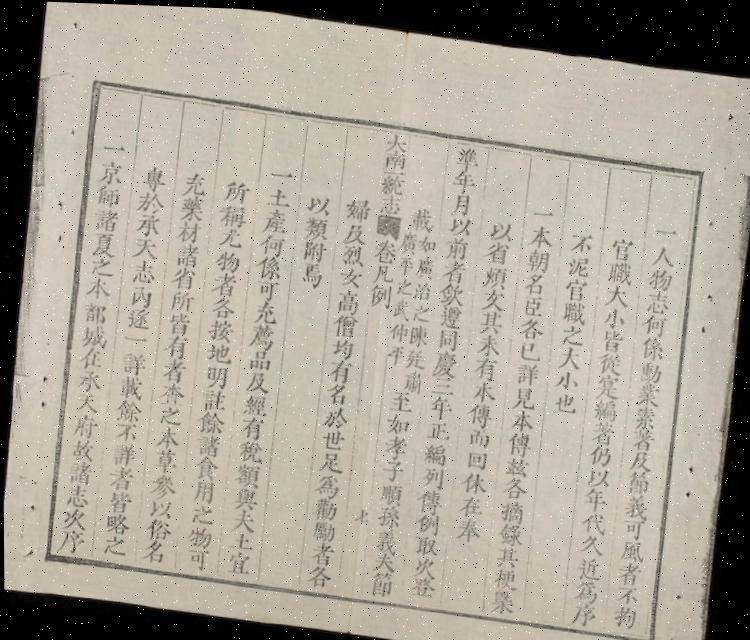 一人物志何係勳業素著及節義可風者不拘
官職大小皆從寔編著仍以年代久近為序
不泥官職之大小也
一本朝名臣各已詳見本傳茲各摘錄其梗槩
以省煩文其未有本傳而回休在奉
準年月以前者欽遵同慶三年正編列傳例取次登
載如廣治之陳廷肅
廣平之武仲平
至如孝子順孫義夫節
大南一統志 卷凡例 上
婦及烈女高僧均有名於世足為勸勵者各
以類附焉
一土產何係可充薦品及經有稅額與夫土宜
所稱尤物者各按地明註餘諸食用之物可
充藥材諸省所皆有者查之本草參以俗名
專於承天志內逐一詳載餘不詳者皆略之
一京師諸夏之本都城在承天府故諸志次序